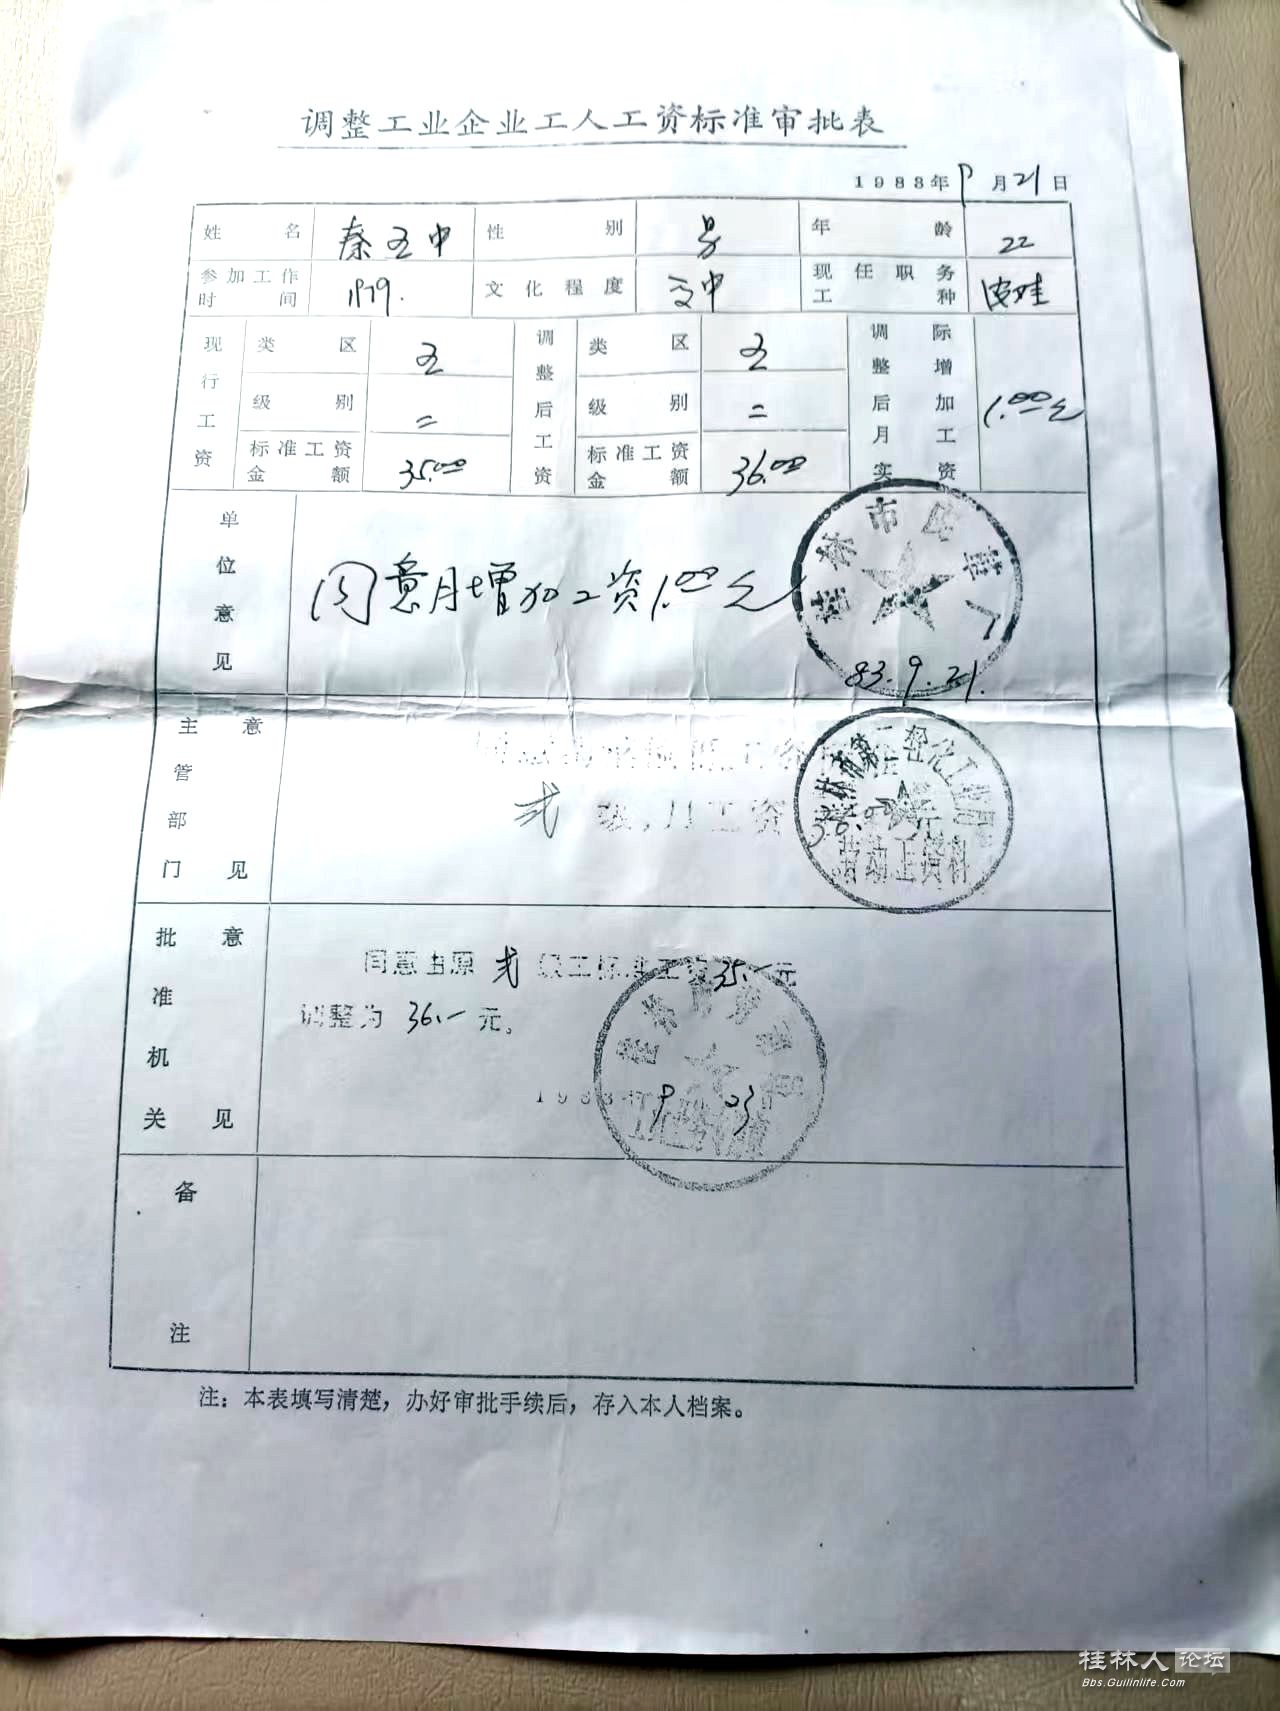 调整工业企业工人工资标准审批表
1983年9月21日
姓名 秦五中 性别 男 年龄 22
参加工作时间 1979. 文化程度 文中 现任职务工种
现行工资 类区 五 调整后工资 类区 五 调整后月实际增加工资 1.00元
级别 二 级别 二
标准工资金额 35.00 标准工资金额 36.00
单位意见
同意月增加工资1.00元
桂林市皮鞋厂
83.9.21.
主管部门意见
弍级,月工资36.00元
桂林市第二轻化工业局
劳动工资科
批准机关意见
同意由原弍级工标准工资35.-元
调整为36.-元。
桂林市劳动局
1983年9 23
备注
注：本表填写清楚，办好审批手续后，存入本人档案。
桂林人论坛
Bbs.Guilinlife.Com